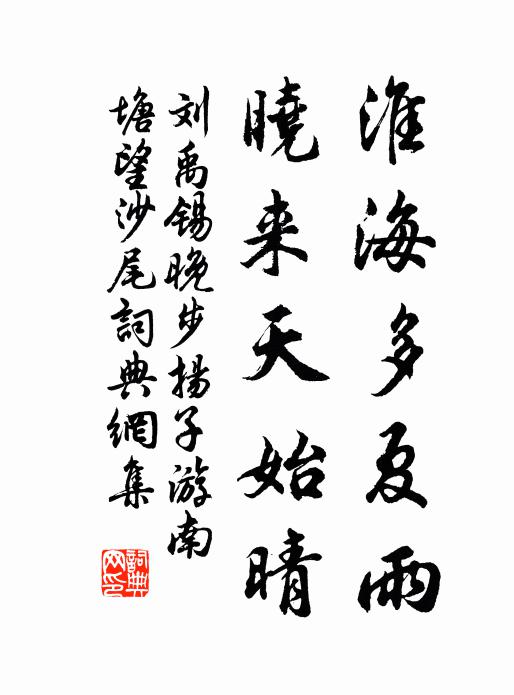 淮海多夏雨
曉来天始晴
刘禹锡晚步揚子游南
塘望沙尾詞典網集
詞典网印